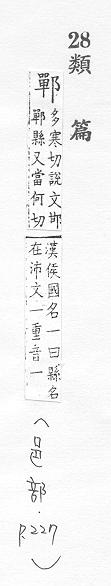 28
類篇
鄲
多寒切說文邯
鄲縣又當何切
漢侯國名一曰縣名
在沛文一重音一
(邑部.
P.227)